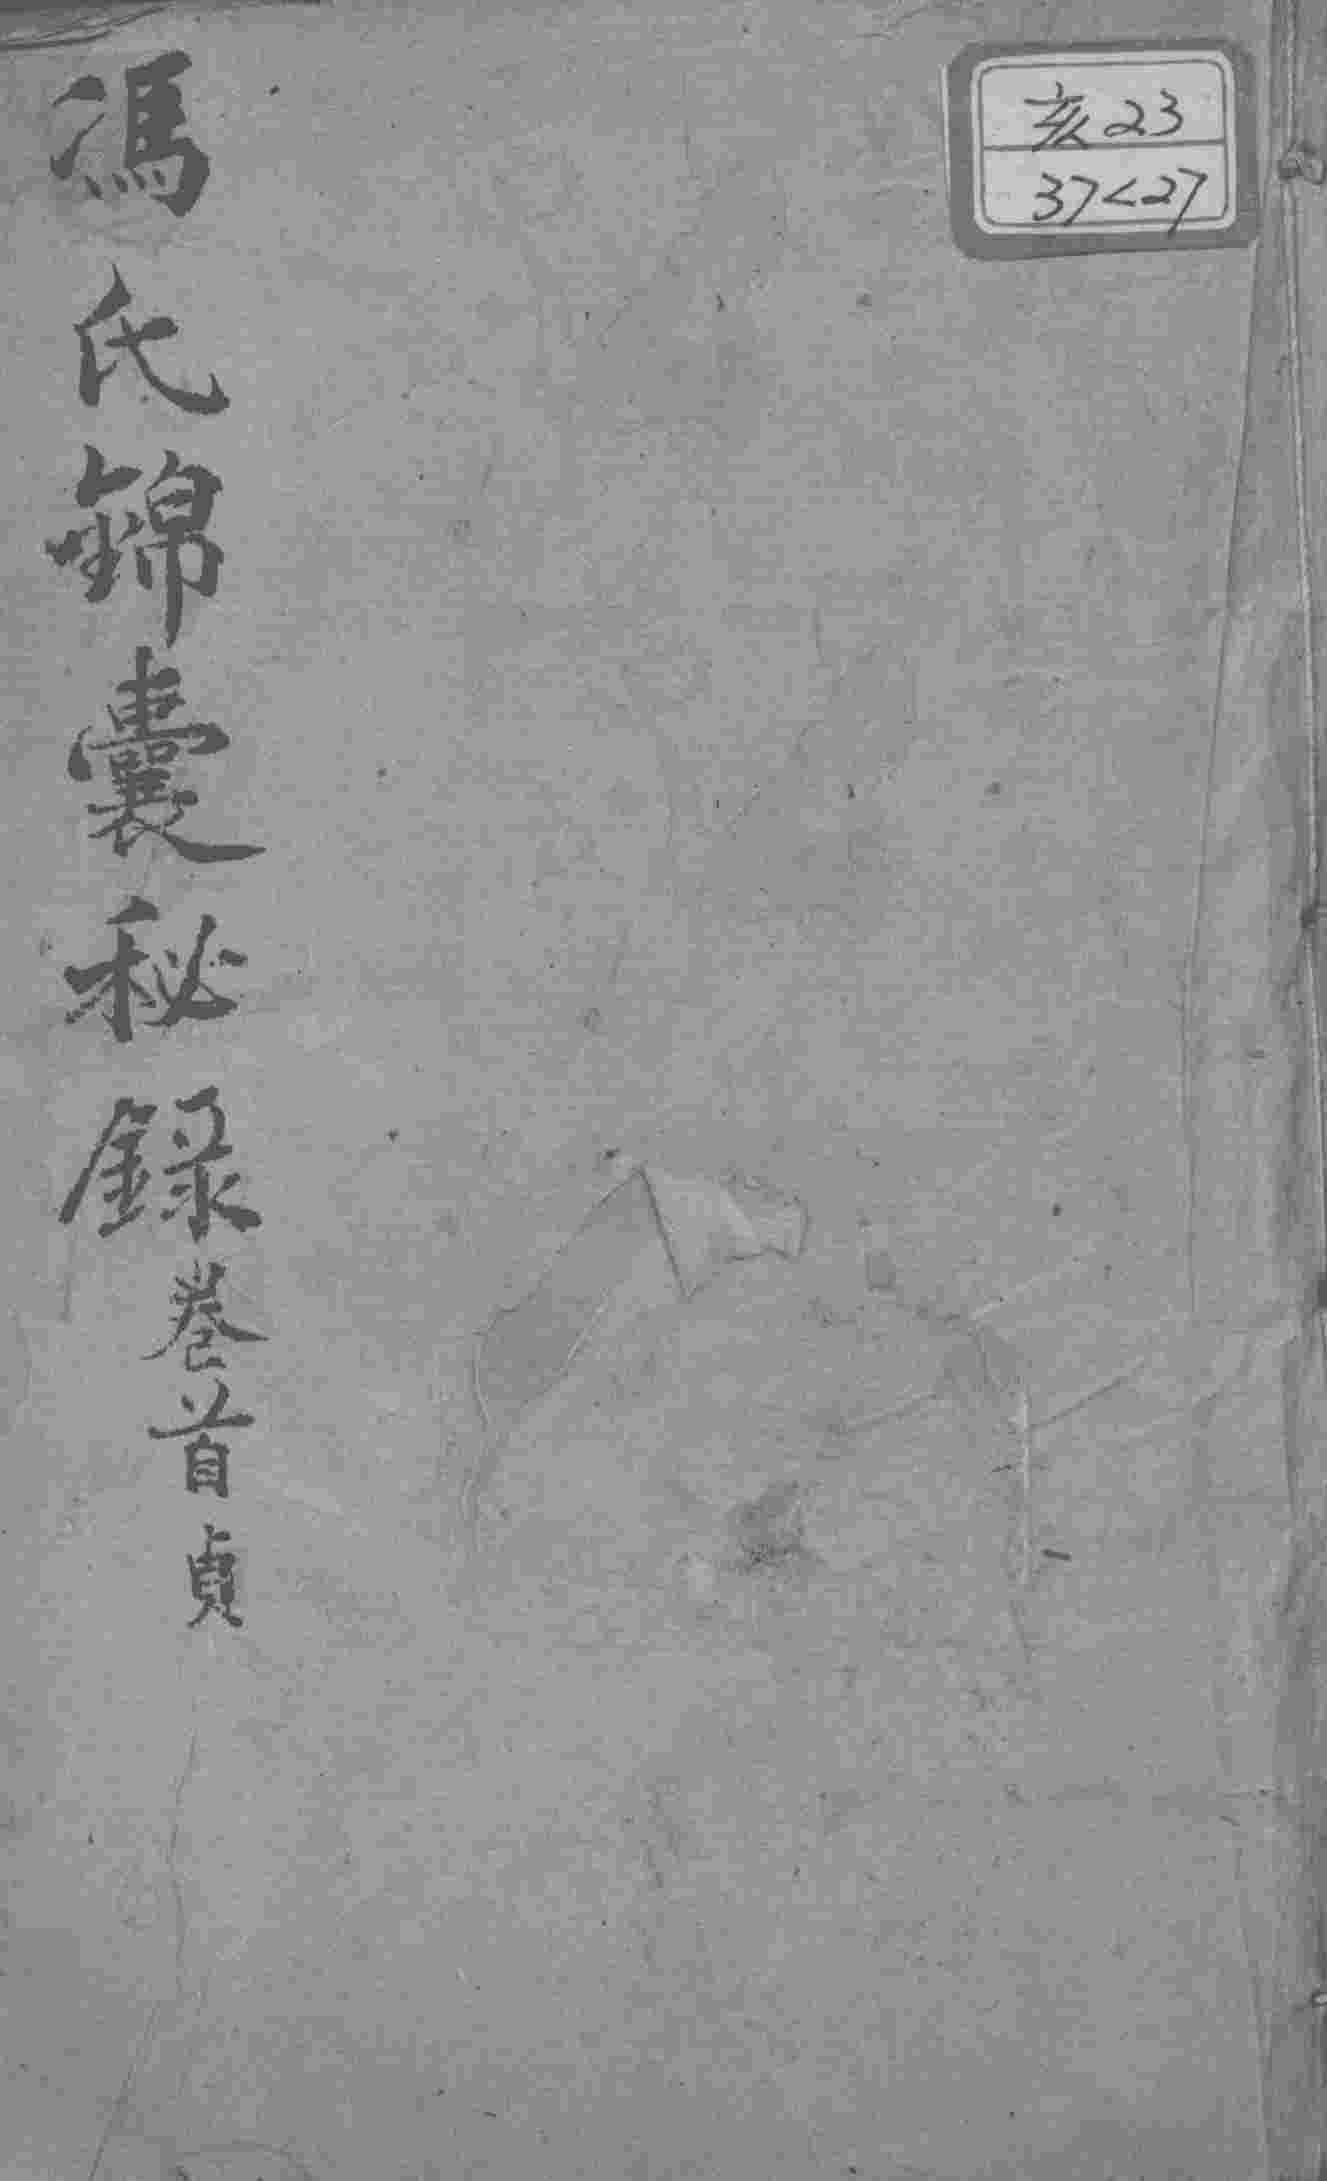 馮氏錦囊秘録卷首貞
亥23
37<27